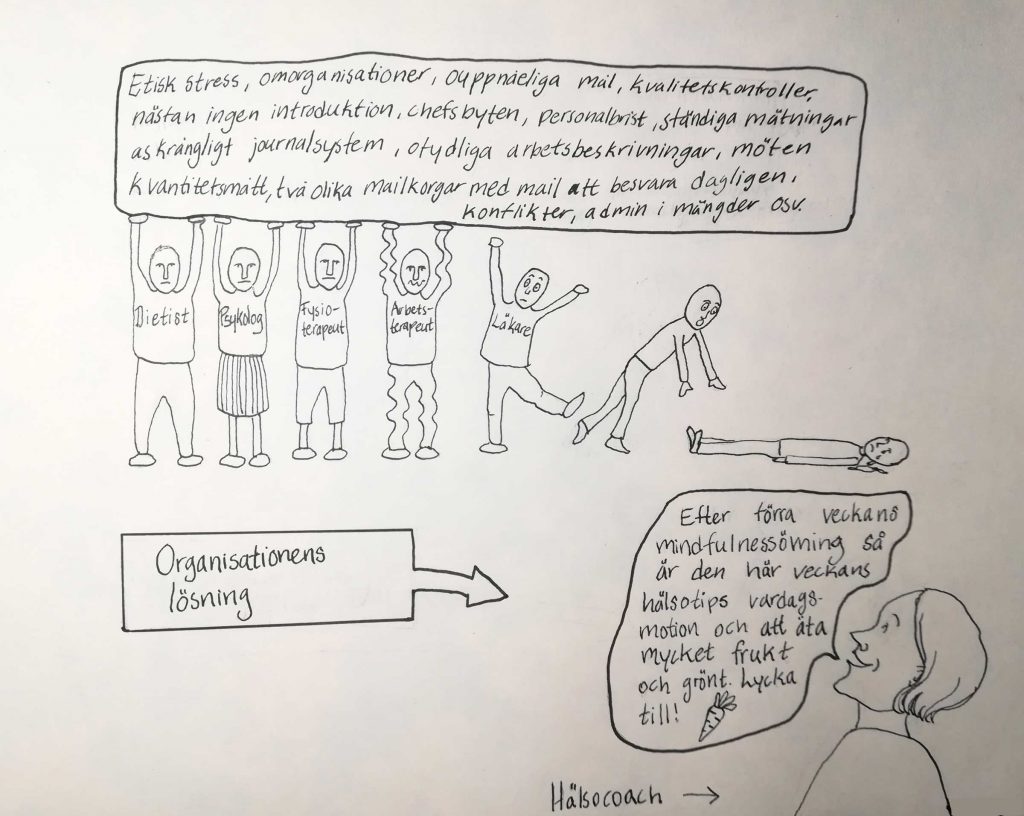 Etisk stress, omorganisationer, ouppnåeliga mål, kvalitetskontroller,
nästan ingen introduktion, chefsbyten, personalbrist, ständiga mätningar
askrångligt journalsystem, otydliga arbetsbeskrivningar, möten
kvantitetsmått, två olika mailkorgar med mail att besvara dagligen,
konflikter, admin i mängder osv.
Dietist
Psykolog
Fysio-
terapeut
Arbets-
terapeut
Läkare
Organisationens
lösning
Efter förra veckans
mindfulnessövning så
är den här veckans
hälsotips vardags-
motion och att äta
mycket frukt
och grönt. Lycka
till!
Hälsocoach →